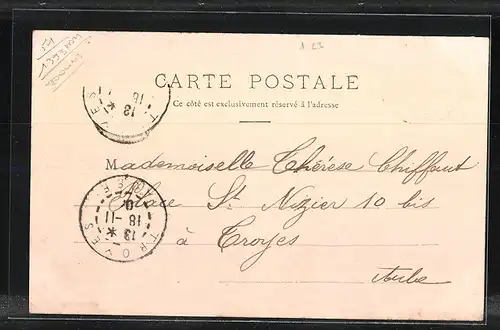 CARTE POSTALE
Ce côté est exclusivement réservé à l'adresse
Mademoiselle Thérèse Chiffaut
Place St Nizier 10 bis
à Troyes
Aube
TROYES
AUBE
13
18-11